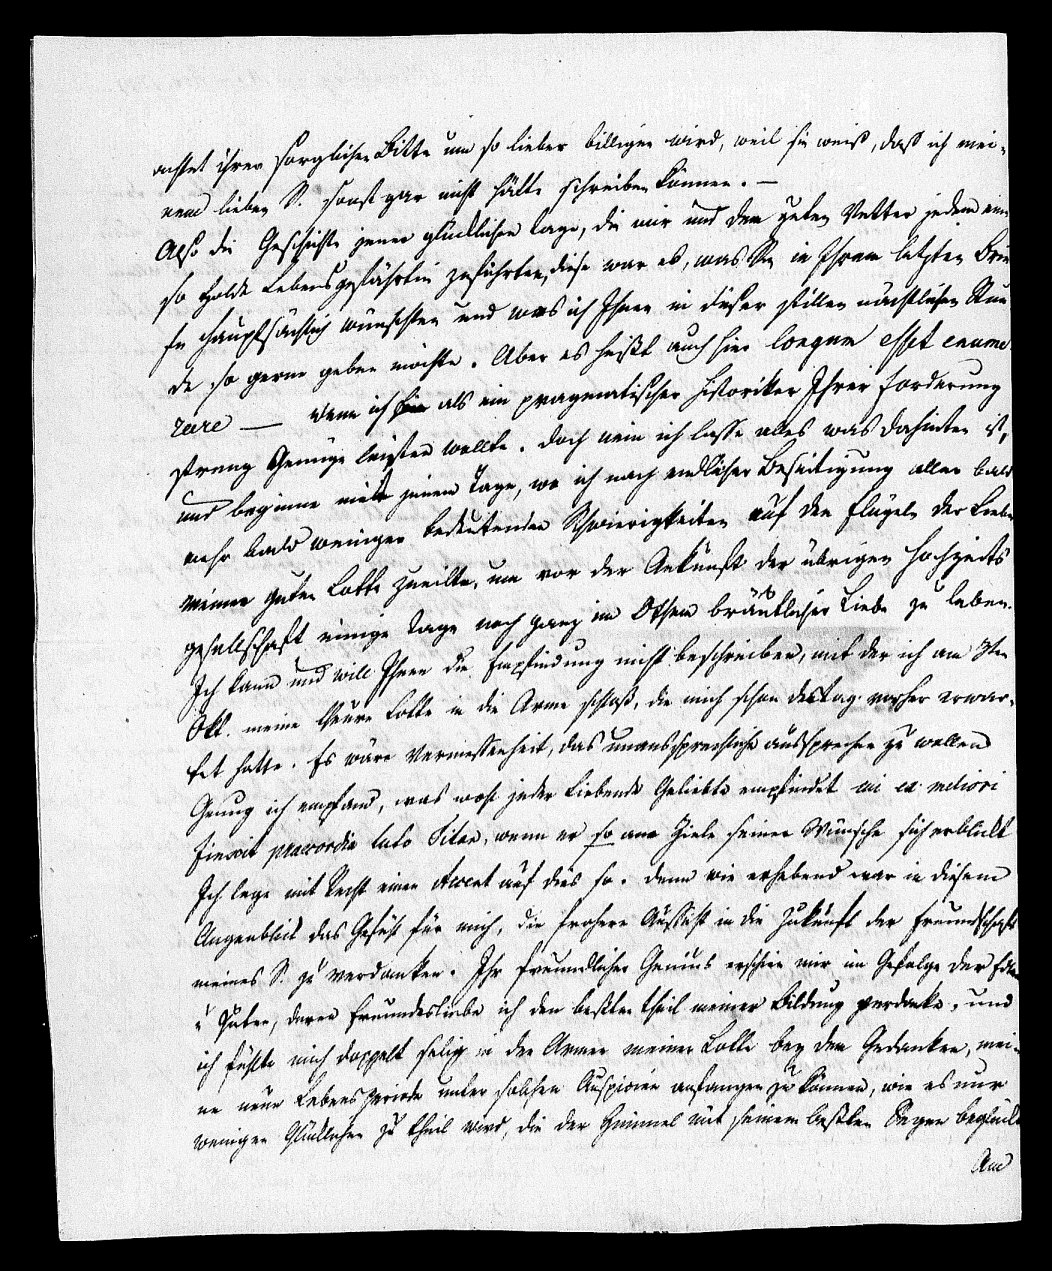 achtet ihrer sorglichen Bitte um so lieber billigen wird, weil sie weiß, daß ich mei-
nem lieben S. sonst gar nicht hätte schreiben können. —
Also die Geschichte jener glücklichen Tage, die mir und dem guten Vetter jedem eine
so holde Lebensgefährtin zuführten, diese war es, was Sie in Ihrem letzten Brie
fe hauptsächlich wünschten und was ich Ihnen in dieser stillen nächtlichen Stun
de so gerne geben möchte. Aber es heißt auch hier longum esset enume
rare — wenn ich als ein pragmatischer Historiker Ihrer Forderung
streng Genüge leisten wollte. Doch nein ich lasse alles was dahinten ist,
und beginne mit jenem Tage, wo ich nach endlicher Beseitigung aller bald
mehr bald weniger bedeutenden Schwierigkeiten auf den Flügeln der Liebe
meiner guten Lotte zueilte, um vor der Ankunft der übrigen Hochzeits
gesellschaft einige Tage noch ganz im Othem bräutlicher Liebe zu leben.
Ich kann und will Ihnen die Empfindung nicht beschreiben, mit der ich am
Okt. meine theure Lotte in die Arme schloß, die mich schon des Tag vorher erwar-
tet hatte. Es wäre Vermessenheit, das unaussprechliche aussprechen zu wollen
Genug ich empfand, was wohl jeder liebende Geliebte empfindet cui ex meliori
finxit praecordia luto Titan, wenn er so am Ziele seiner Wünsche sich erblickt
Ich lege mit Recht einen Accent auf dies so. Denn wie erhebend war in diesem
Augenblick das Gefühl für mich, die frohere Aussicht in die Zukunft der Freundschaft
meines S. zu verdanken. Ihr freundlicher Genius erschien mir im Gefolge der Edlen
u Guten, deren Freundesliebe ich den besten Theil meiner Bildung verdanke, und
ich fühlte mich doppelt selig in den Armen meiner Lotte bey dem Gedanken, mei-
ne neue Lebensperiode unter solchen Auspicien anfangen zu können, wie es nur
wenigen Glücklichen zu Theil wird, die der Himmel mit seinem besten Segen beglückt
Am